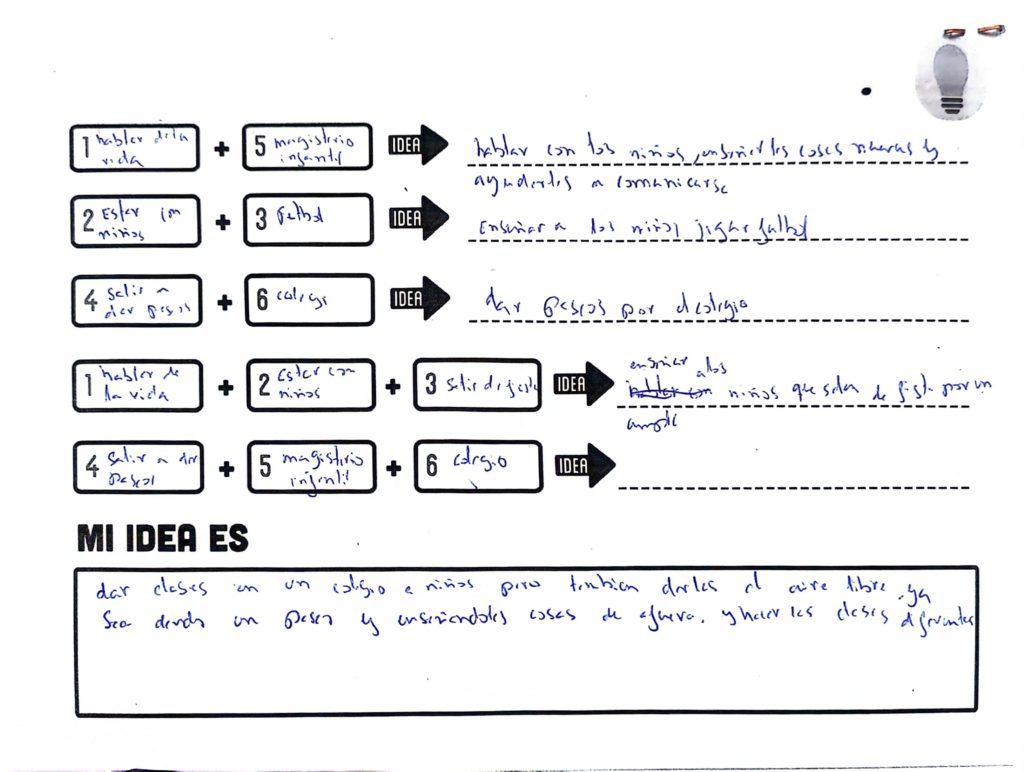 1 hablar de la vida + 5 magisterio infantil IDEA hablar con los niños, enseñarles cosas nuevas y
ayudarles a comunicarse
2 Estar con niños + 3 futbol IDEA Enseñar a los niños jugar futbol
4 salir a dar paseos + 6 colegio IDEA dar paseos por el colegio
enseñar a los
1 hablar de la vida + 2 Estar con niños + 3 salir de fiesta IDEA niños que salen de fiesta por un
4 salir a dar paseos + 5 magisterio infantil + 6 colegio IDEA
MI IDEA ES
dar clases en un colegio a niños pero tambien darlas al aire libre, ya
sea dando un paseo y enseñandoles cosas de afuera, y hacer las clases diferentes